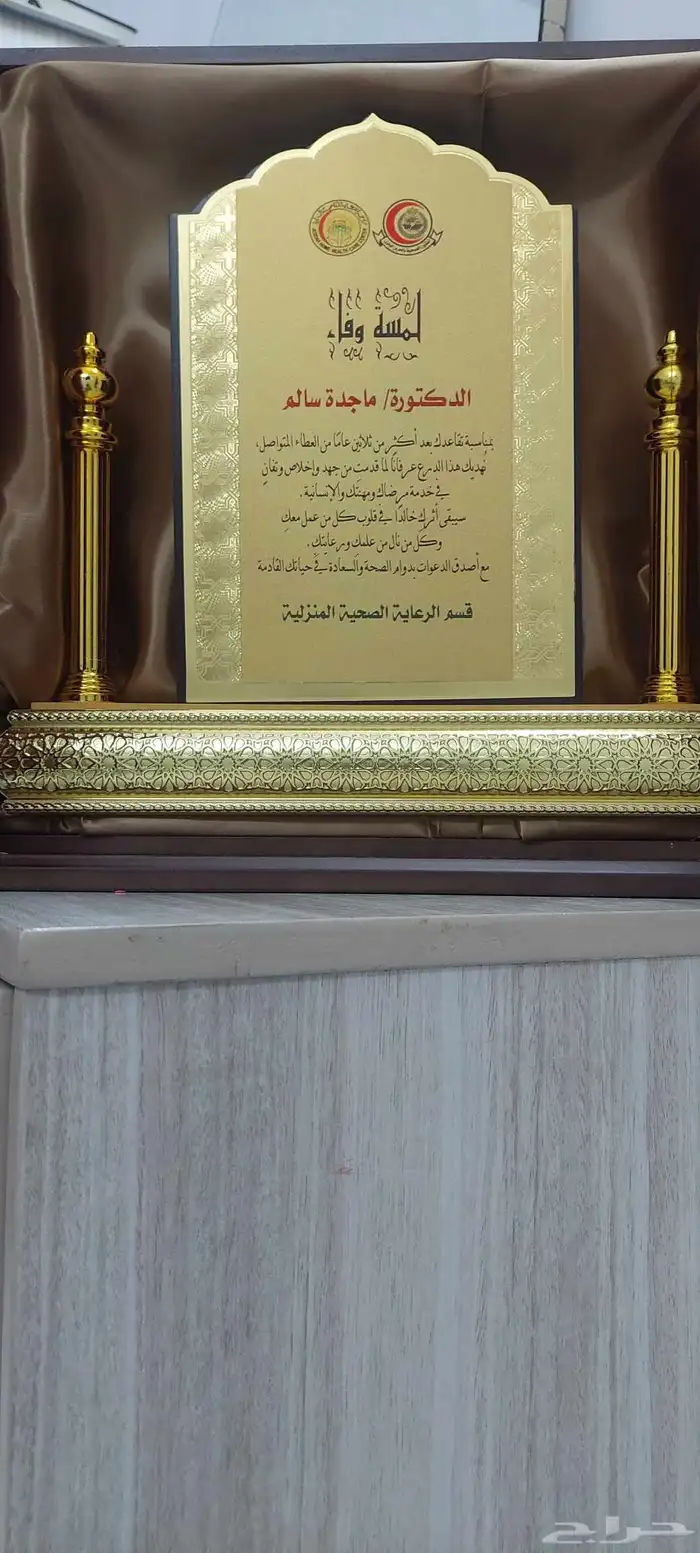 لمسة وفاء
الدكتورة/ ماجدة سالم
بمناسبة تقاعدك بعد أكثر من ثلاثين عامًا من العطاء المتواصل،
نُهديك هذا الدرع عرفانًا لما قدمتِ من جهد وإخلاص وتفانٍ
في خدمة مرضاك ومهنتك والإنسانية.
سيبقى أثرك خالدًا في قلوب كل من عمل معكِ
وكل من نال من علمك ورعايتك.
مع أصدق الدعوات بدوام الصحة والسعادة في حياتك القادمة
قسم الرعاية الصحية المنزلية
حراج